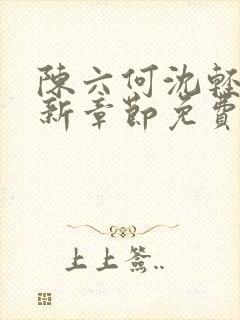 陳六何沈輕
新章節免費
上上簽..